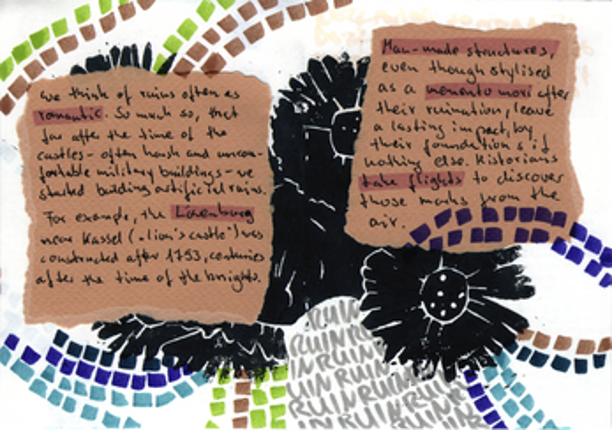 We think of ruins often as
romantic. So much so, that
far after the time of the
castles - often harsh and uncom-
fortable military buildings - we
started building artificial ruins.
For example, the Löwenburg
near Kassel („lion's castle") was
constructed after 1793, centuries
after the time of the knights.
Man-made structures,
even though stylised
as a memento mori after
their ruination, leave
a lasting impact, by
their foundations if
nothing else. Historians
take flights to discover
those marks from the
air.
RUIN
RUINRU
RUINRUIN
UINRUINRUIN
RUINRUINRUIN
INRUINRUINRUIN